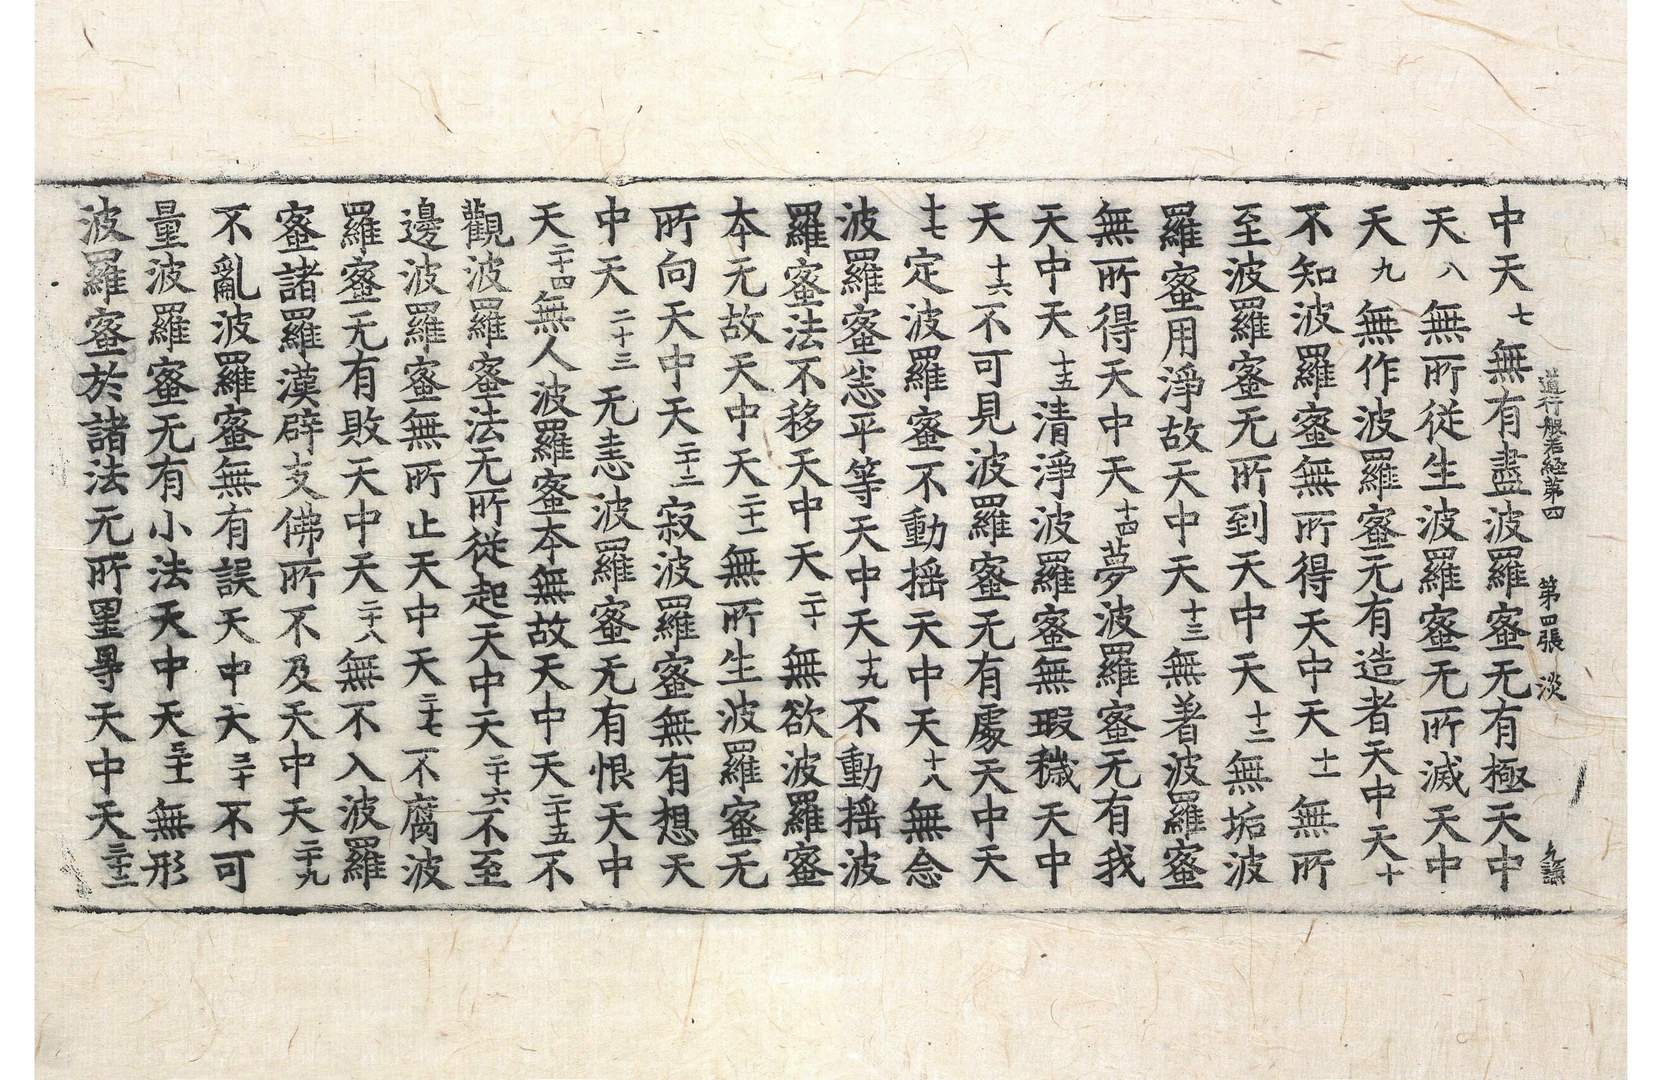 道行般若経第四 第四張 淡
中天七無有盡波羅蜜无有極天中
天八無所從生波羅蜜无所滅天中
天九無作波羅蜜无有造者天中天十
不知波羅蜜無所得天中天十一無所
至波羅蜜无所到天中天十二無垢波
羅蜜用淨故天中天十三無著波羅蜜
無所得天中天十四夢波羅蜜无有我
天中天十五清淨波羅蜜無瑕穢天中
天十六不可見波羅蜜无有處天中天
十七定波羅蜜不動揺天中天十八無念
波羅蜜悉平等天中天十九不動揺波
羅蜜法不移天中天二十無欲波羅蜜
本无故天中天二十一無所生波羅蜜无
所向天中天二十二寂波羅蜜無有想天
中天二十三无恚波羅蜜无有恨天中
天二十四無人波羅蜜本無故天中天二十五不
觀波羅蜜法无所從起天中天二十六不至
邊波羅蜜無所止天中天二十七不腐波
羅蜜无有敗天中天二十八無不入波羅
蜜諸羅漢辟支佛所不及天中天二十九
不亂波羅蜜無有誤天中天三十不可
量波羅蜜无有小法天中天三十一無形
波羅蜜於諸法无所罣㝵天中天三十二